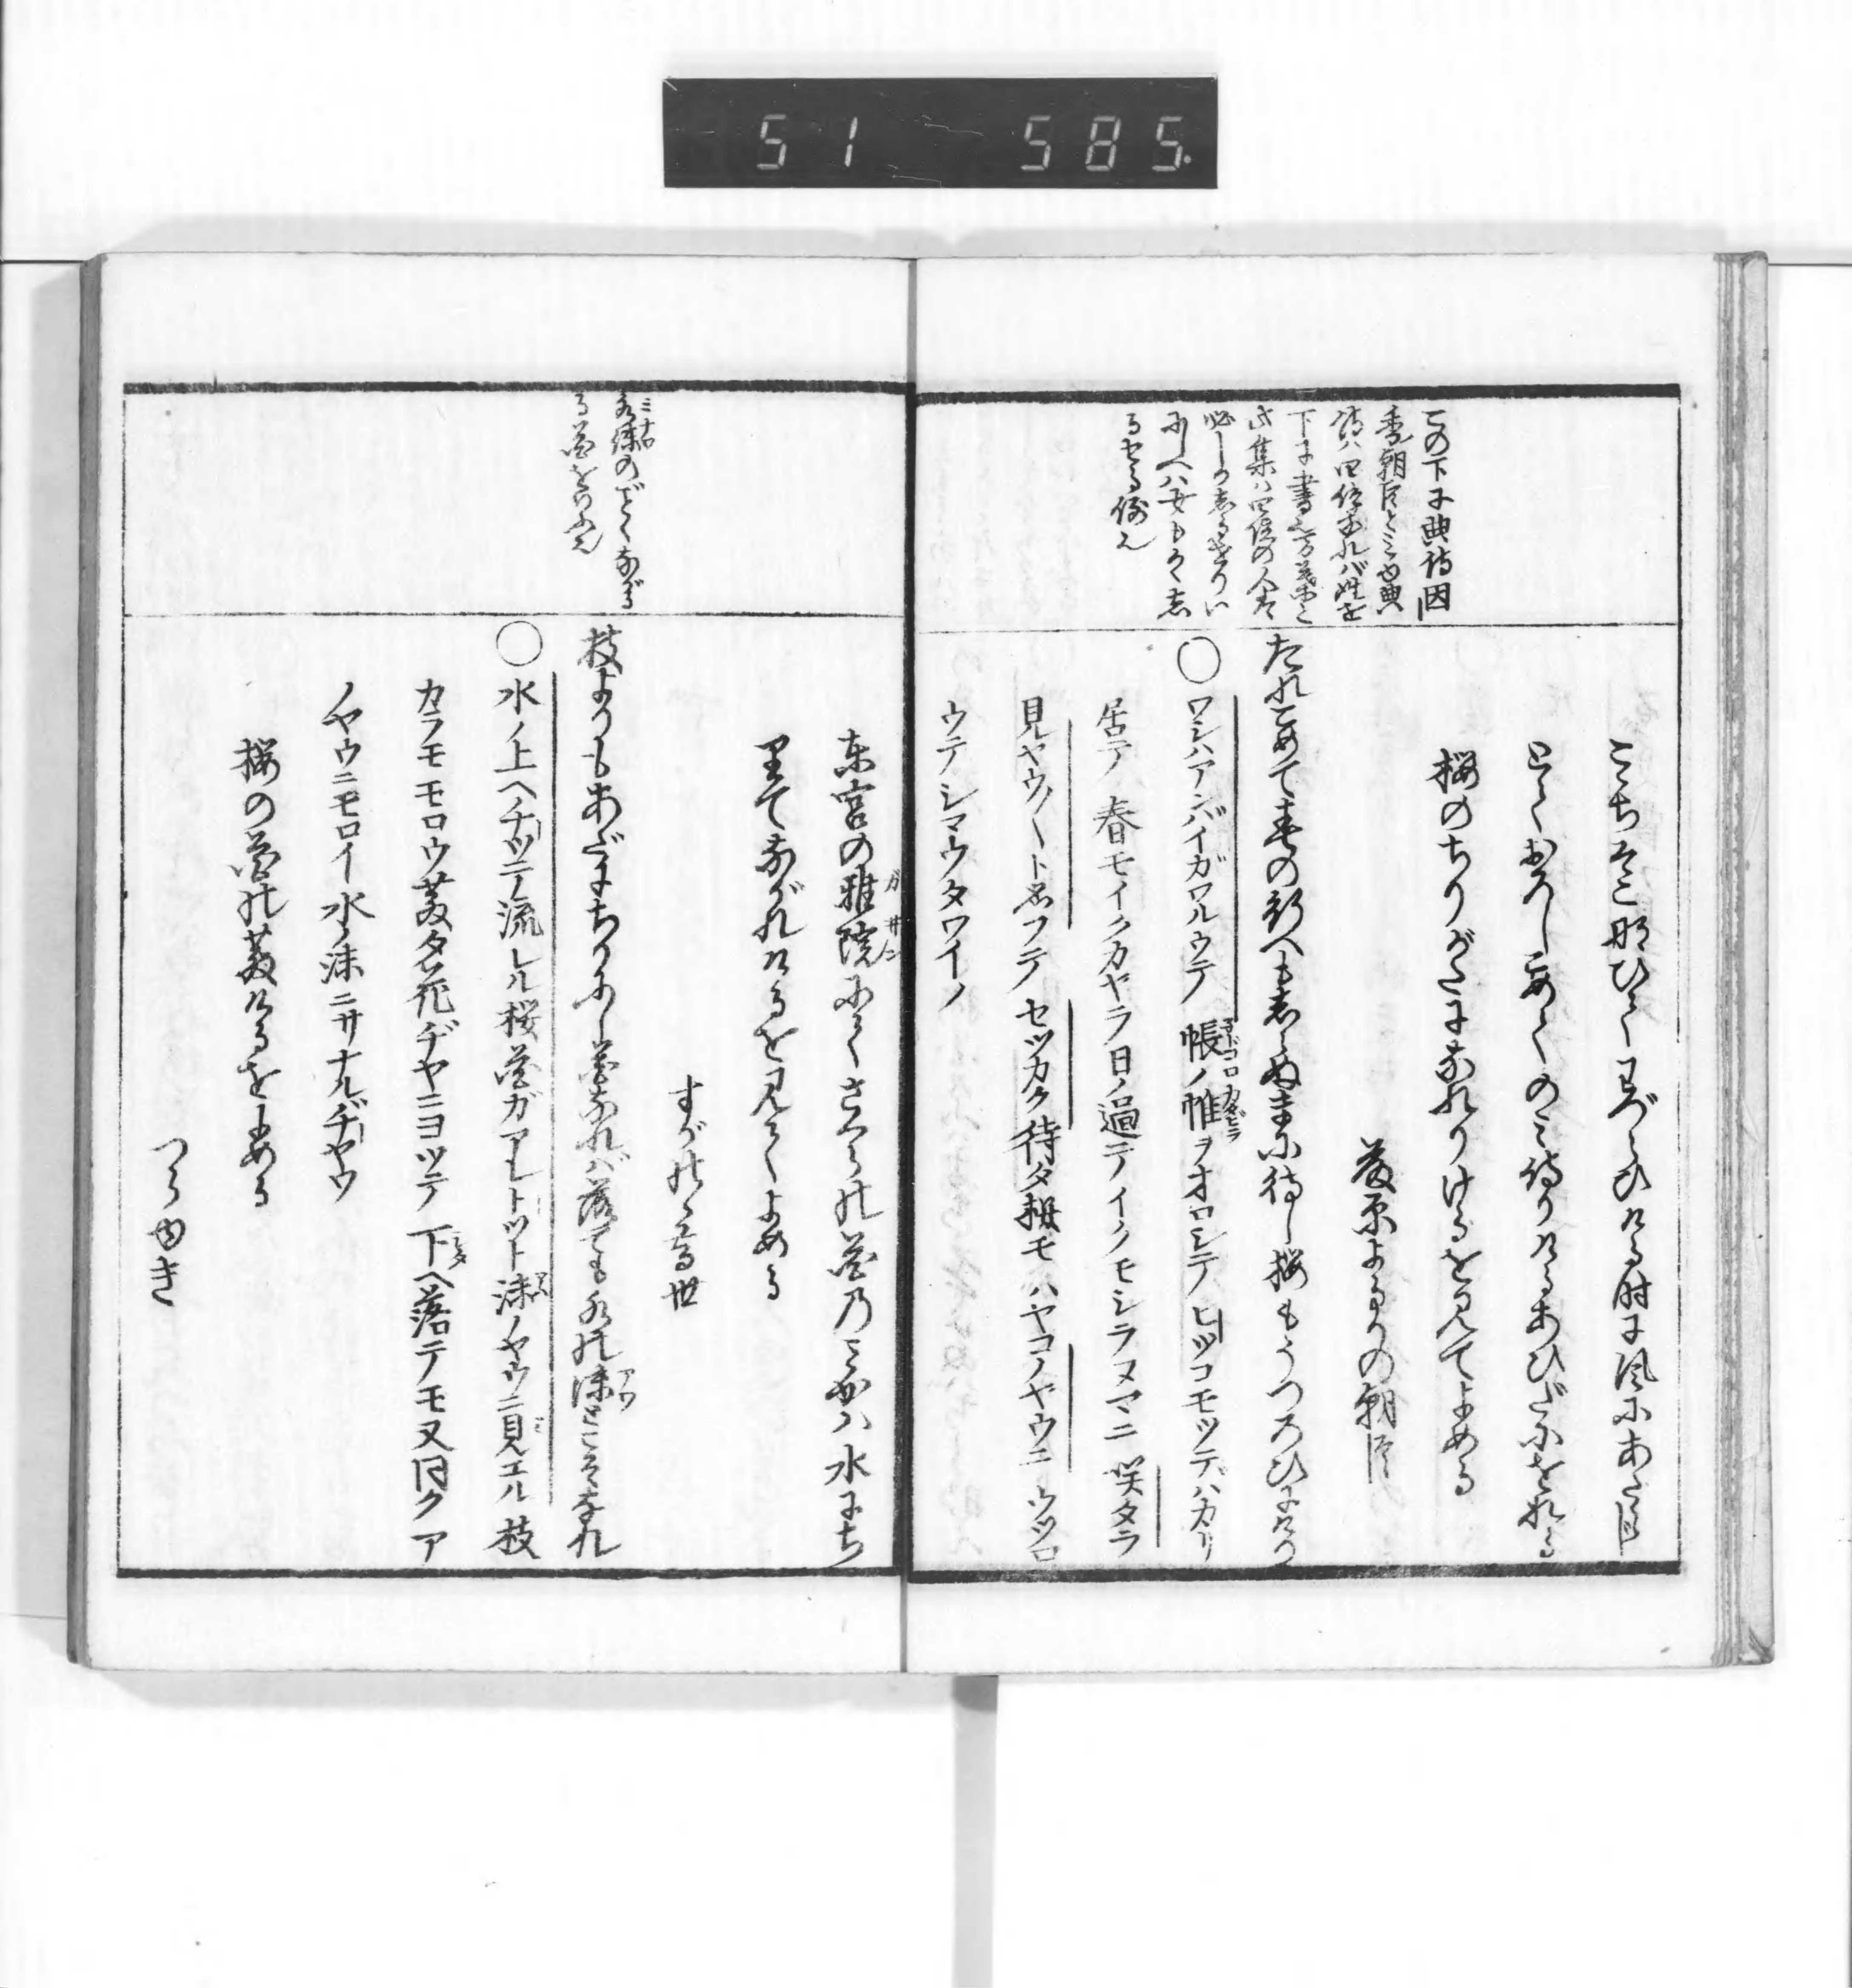 51 585
この下に典侍因
香朝臣とミゆ典
侍ハ四位なれバ姓を
下に書
此集ハ四位の人を
必しも
にしへハ女もかく志
るせる例也
こゝちそこなひてわづらひける時に風にあたらじ
とておろしこめてのミ侍りけるあひだにをれる
桜のちりがたになれりけるを見てよめる
藤原よるかの朝臣
たれこめて春の行へも志らぬまに待し桜もうつろひにけり
○ワシハアンバイガワルウテ 帳ノ帷ヲオロシテヒツコモツテバカリ
居テ 春モイクカヤラ日ノ過テイクモシラヌマニ 咲タラ
見ヤウ〱ト思フテ セツカク待タ桜モ ハヤコノヤウニ ウツロ
ウテシマウタワイノ
水沫のごとくながる
る花をいふ也
東宮の雅院にてさくらの花のミかハ水にち
りてながれけるを見てよめる
すがのゝ高世
枝よりもあだにちりにし花なれバ落ても水の沫とこそなれ
○水ノ上ヘチツテ流レル桜花ガアレトツト沫ノヤウニ見エル 枝
カラモモロウ散タ花ヂヤニヨツテ 下ヘ落テモ又同クア
ノヤウニモロイ水ノ沫ニサナルヂヤワ
桜の花の散けるをよめる
つらゆき